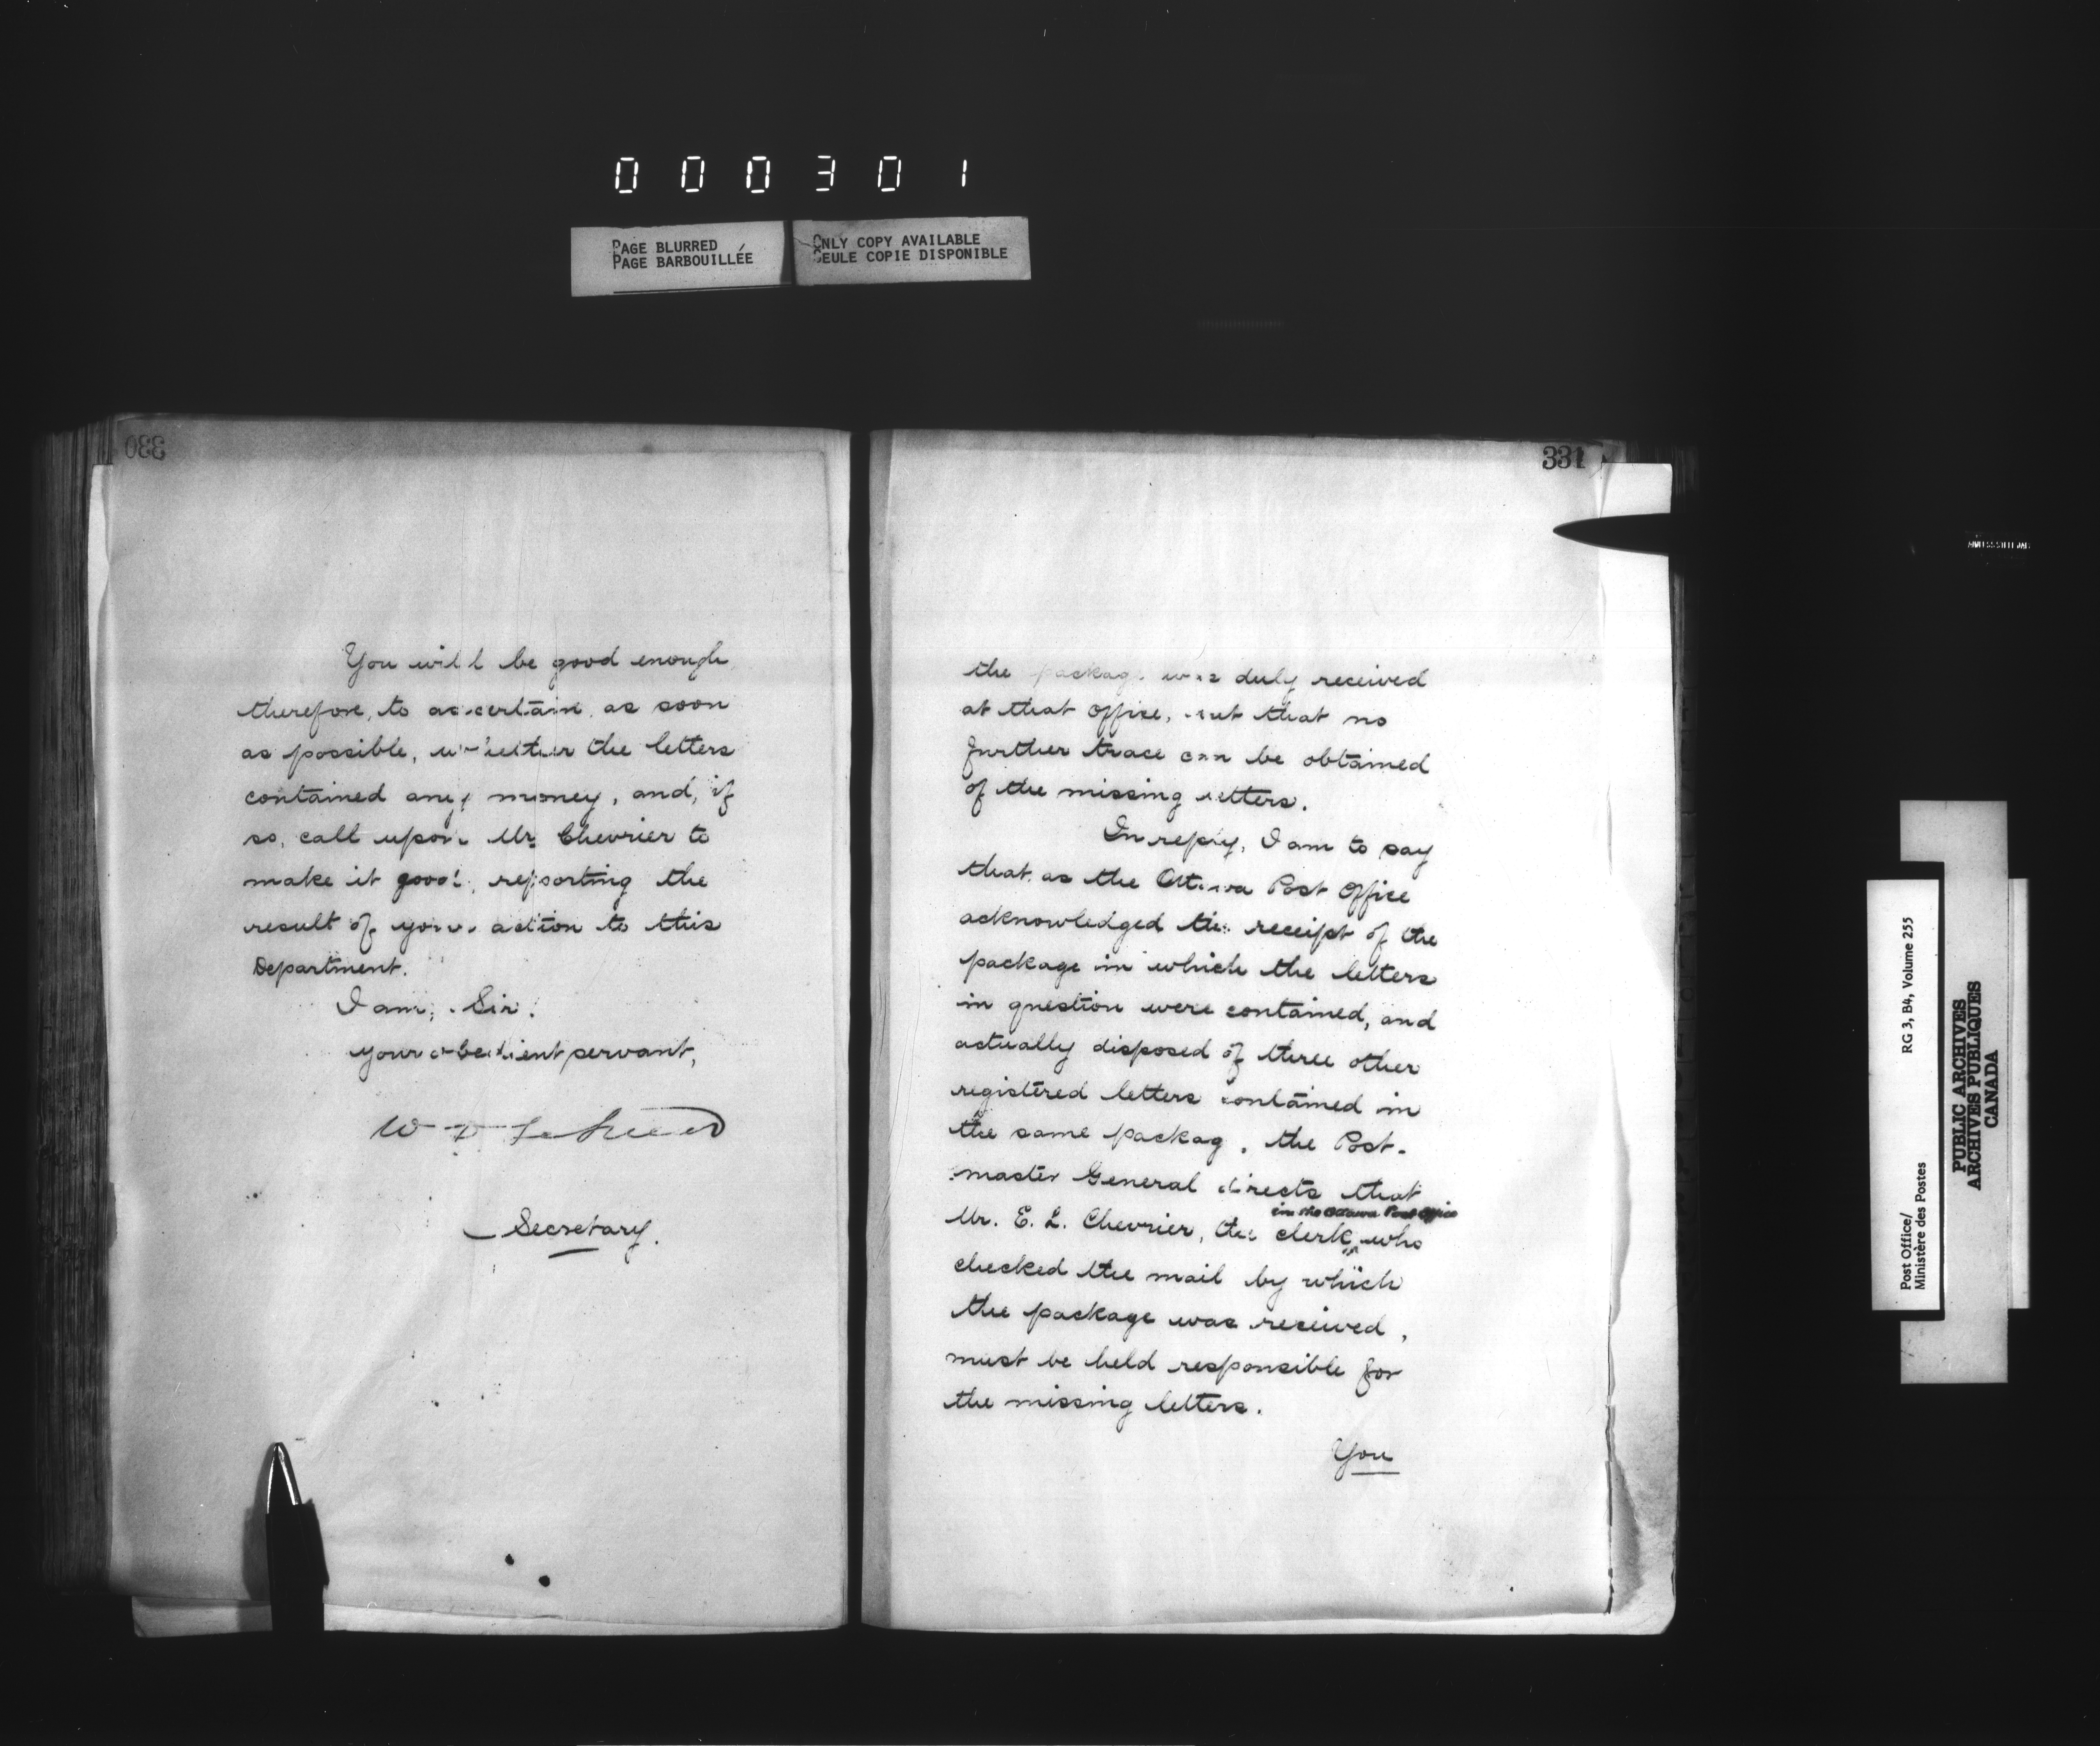 000301
PAGE BLURRED
PAGE BARBOUILLÉE
ONLY COPY AVAILABLE
SEULE COPIE DISPONIBLE
330
You will be good enough
therefore, to ascertain, as soon
as possible, whether the letters
contained any money, and, if
so, call upon Mr. Chevrier to
make it good, reporting the
result of your action to this
Department.
I am, Sir,
your obedient servant,
Secretary.
331
the package was duly received
at that office, but that no
further trace can be obtained
of the missing letters.
In reply, I am to say
that, as the Ottawa Post Office
acknowledged the receipt of the
package in which the letters
in question were contained, and
actually disposed of three other
registered letters contained in
the same package, the Post-
master General directs that
in the Ottawa Post Office
Mr. E. L. Chevrier, the clerk who
checked the mail by which
the package was received,
must be held responsible for
the missing letters.
You
Post Office/
Ministère des Postes
RG 3, B4, Volume 255
PUBLIC ARCHIVES
ARCHIVES PUBLIQUES
CANADA